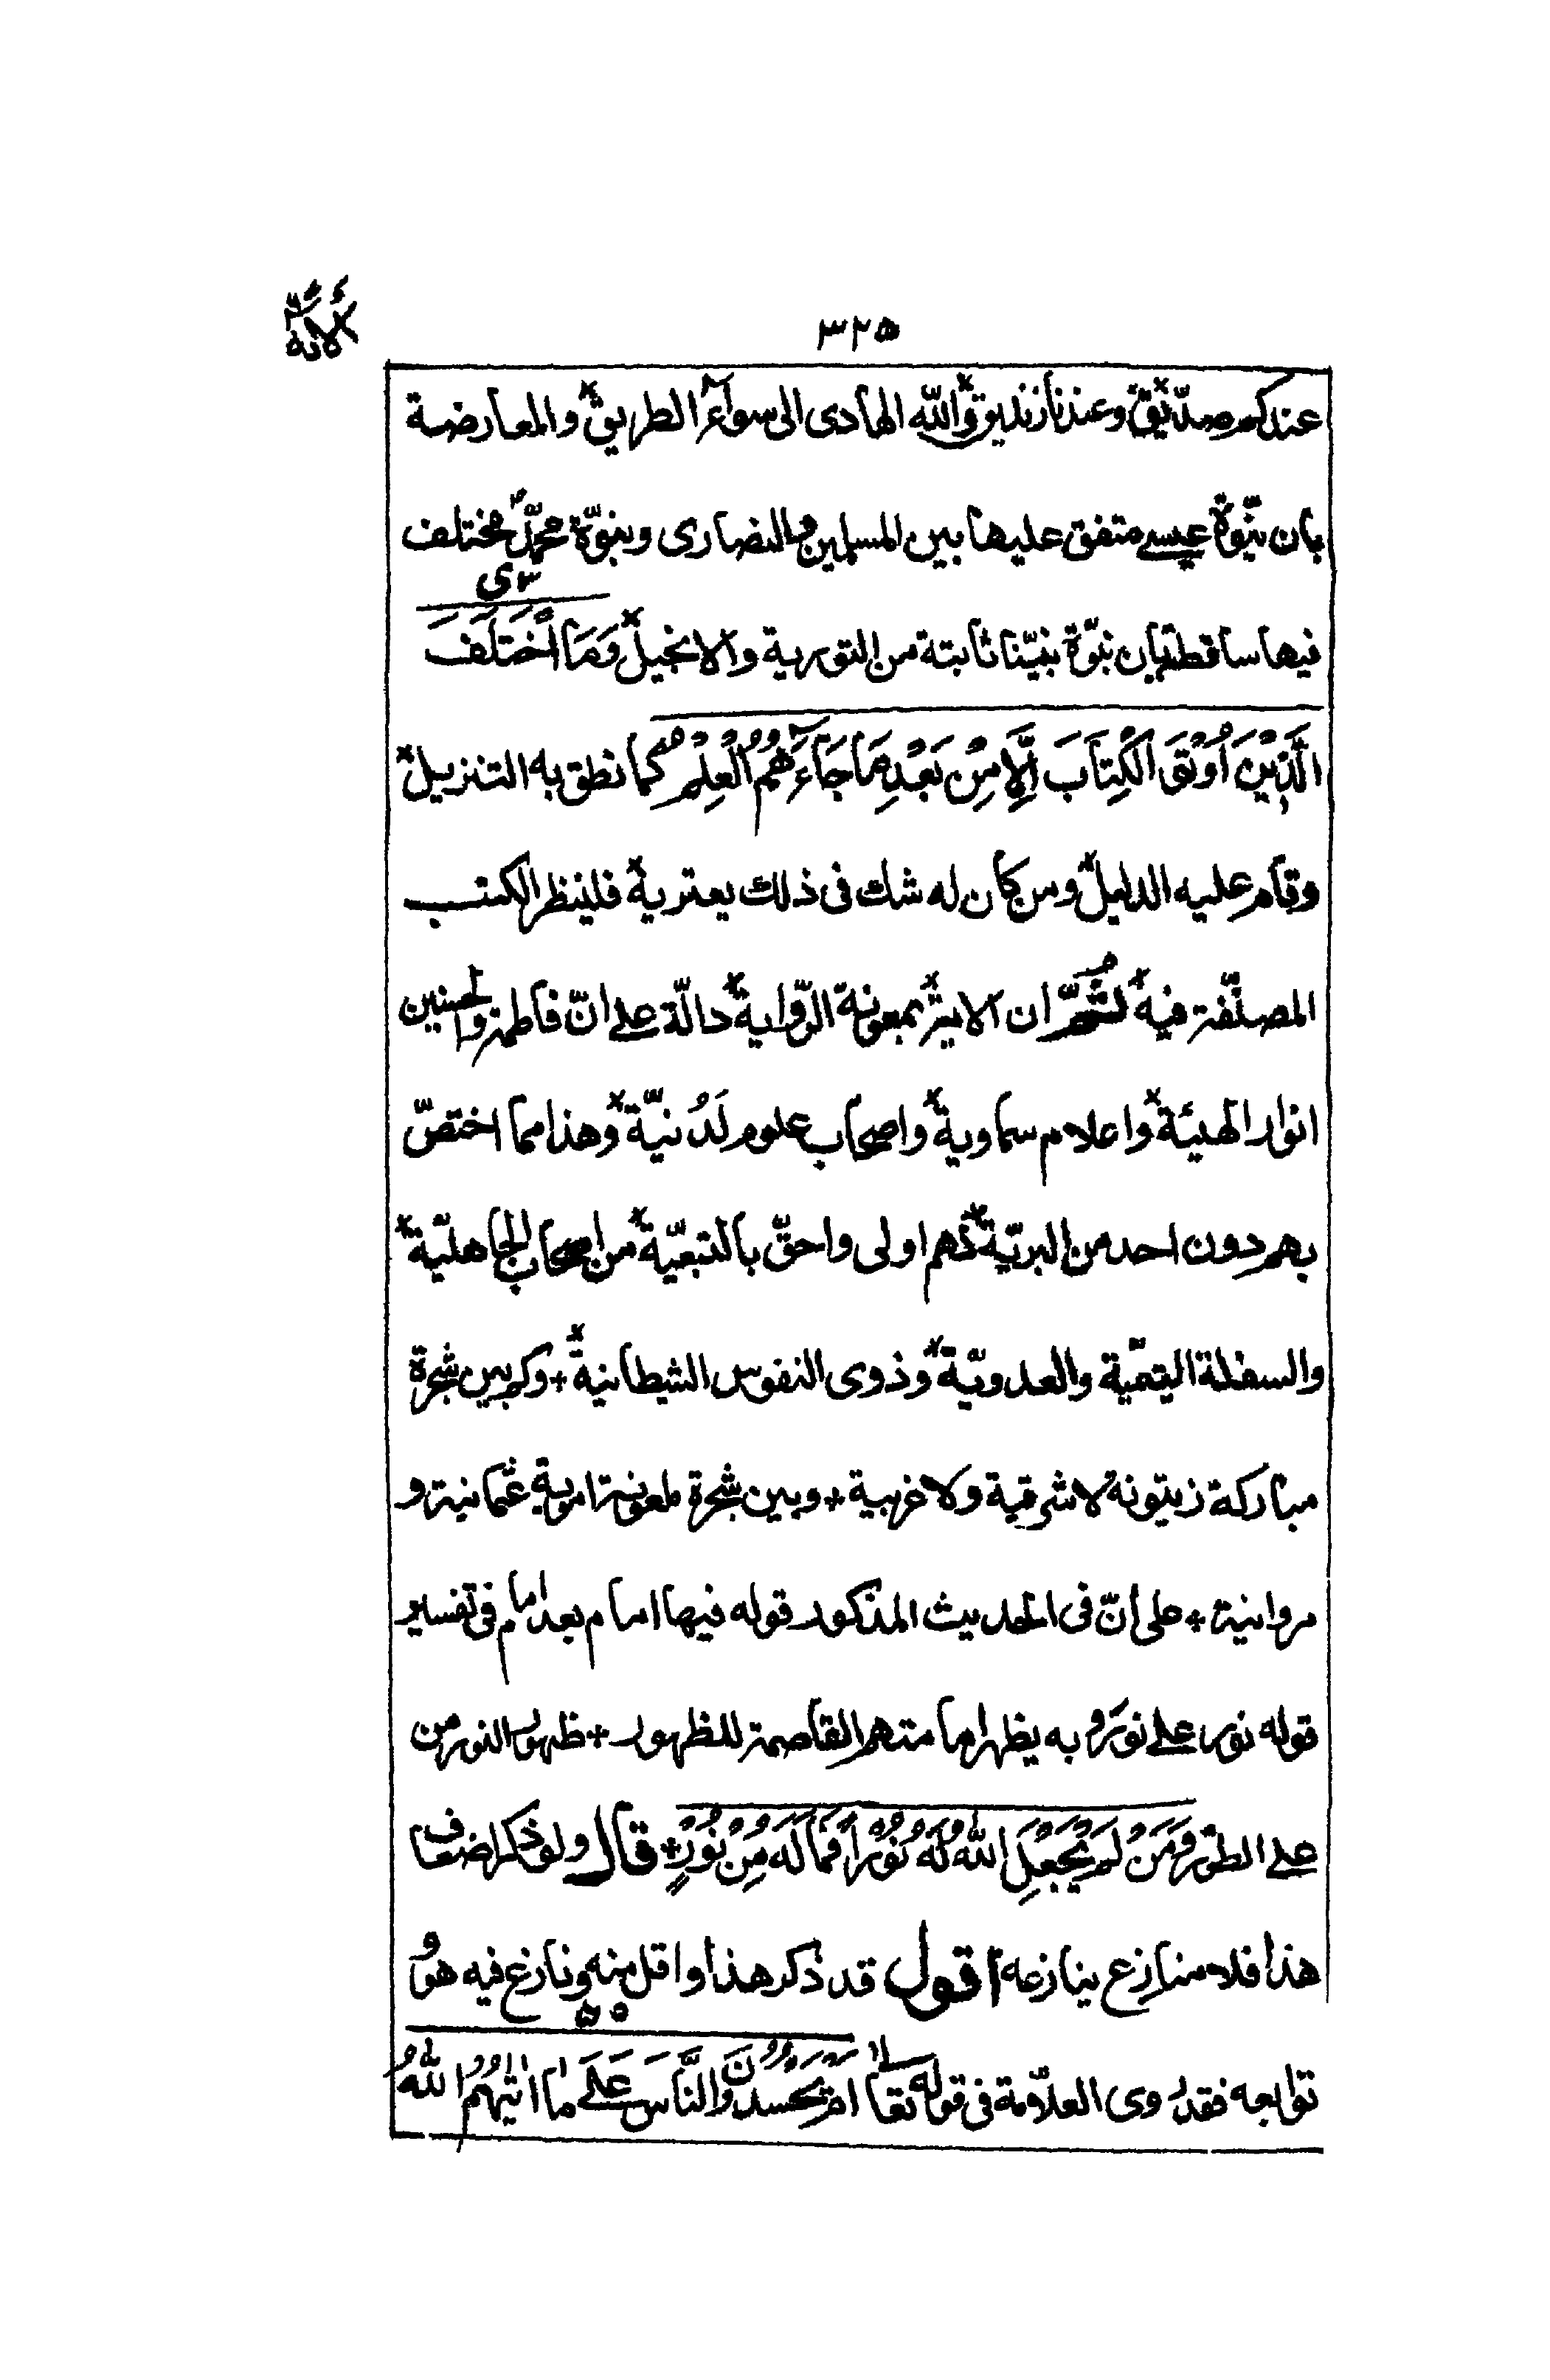 ٣٢٥
عندكم صدّيق وعندنا زنديق والله الهادى الى سوآء الطريق والمعارضة
بان نبّوة عيسے متفق عليها بين المسلمين والنصارى وبنوّة محمّد مختلف
فيها ساقطة بان نبوّة نبيّنا ثابتة من التورية والانجيل وَمَا اخْتَلَفَ
الَّذِيْنَ اُوْتُوا الْكِتَابَ اِلَّا مِنْ بَعْدِ مَا جَآءَهُمُ الْعِلْمُ كما نطق به التنزيل
وقام عليه الدليل ومن كان له شك فى ذلك يعتريه فلينظر الكتب
المصنّفة فيه ثمّ ان الاية بمعونة الرّواية دالّة علے انّ فاطمة والحسنين
انوار الهيّة واعلام سماوية واصحاب علوم لَدُنيّة وهذا مما اختصّ
بهم دون احد من البريّة فهم اولى واحقّ بالتبعيّة من اصحاب الجاهليّة
والسفلة التيميّة والعدويّة وذوى النفوس الشيطانية + وكم بين شجرة
مباركة زيتونة لا شرقية ولا غربية + وبين شجرة ملعونة اموية عثمانية و
مروانية + على انّ فى الحديث المذكور قوله فيها امام بعد امام فى تفسير
قوله نور علے نور وبه يظهر امامتهم القاصمة للظهور + ظهور النور من
علے الطور وَمَنْ لَمْ يَجْعَلِ اللّٰهُ لَهُ نُوْرًا فَمَا لَهُ مِنْ نُوْرٍ + قال ولو ذكر اضعاف
هذا فلا منازع ينازعه اقول قد ذكر هذا واقل منه ونازع فيه هو و
توابعه فقد روى العلّامة فى قوله تعالى اَمْ يَحْسُدُوْنَ النَّاسَ عَلَے مَا اٰتٰهُمُ اللّٰهُ